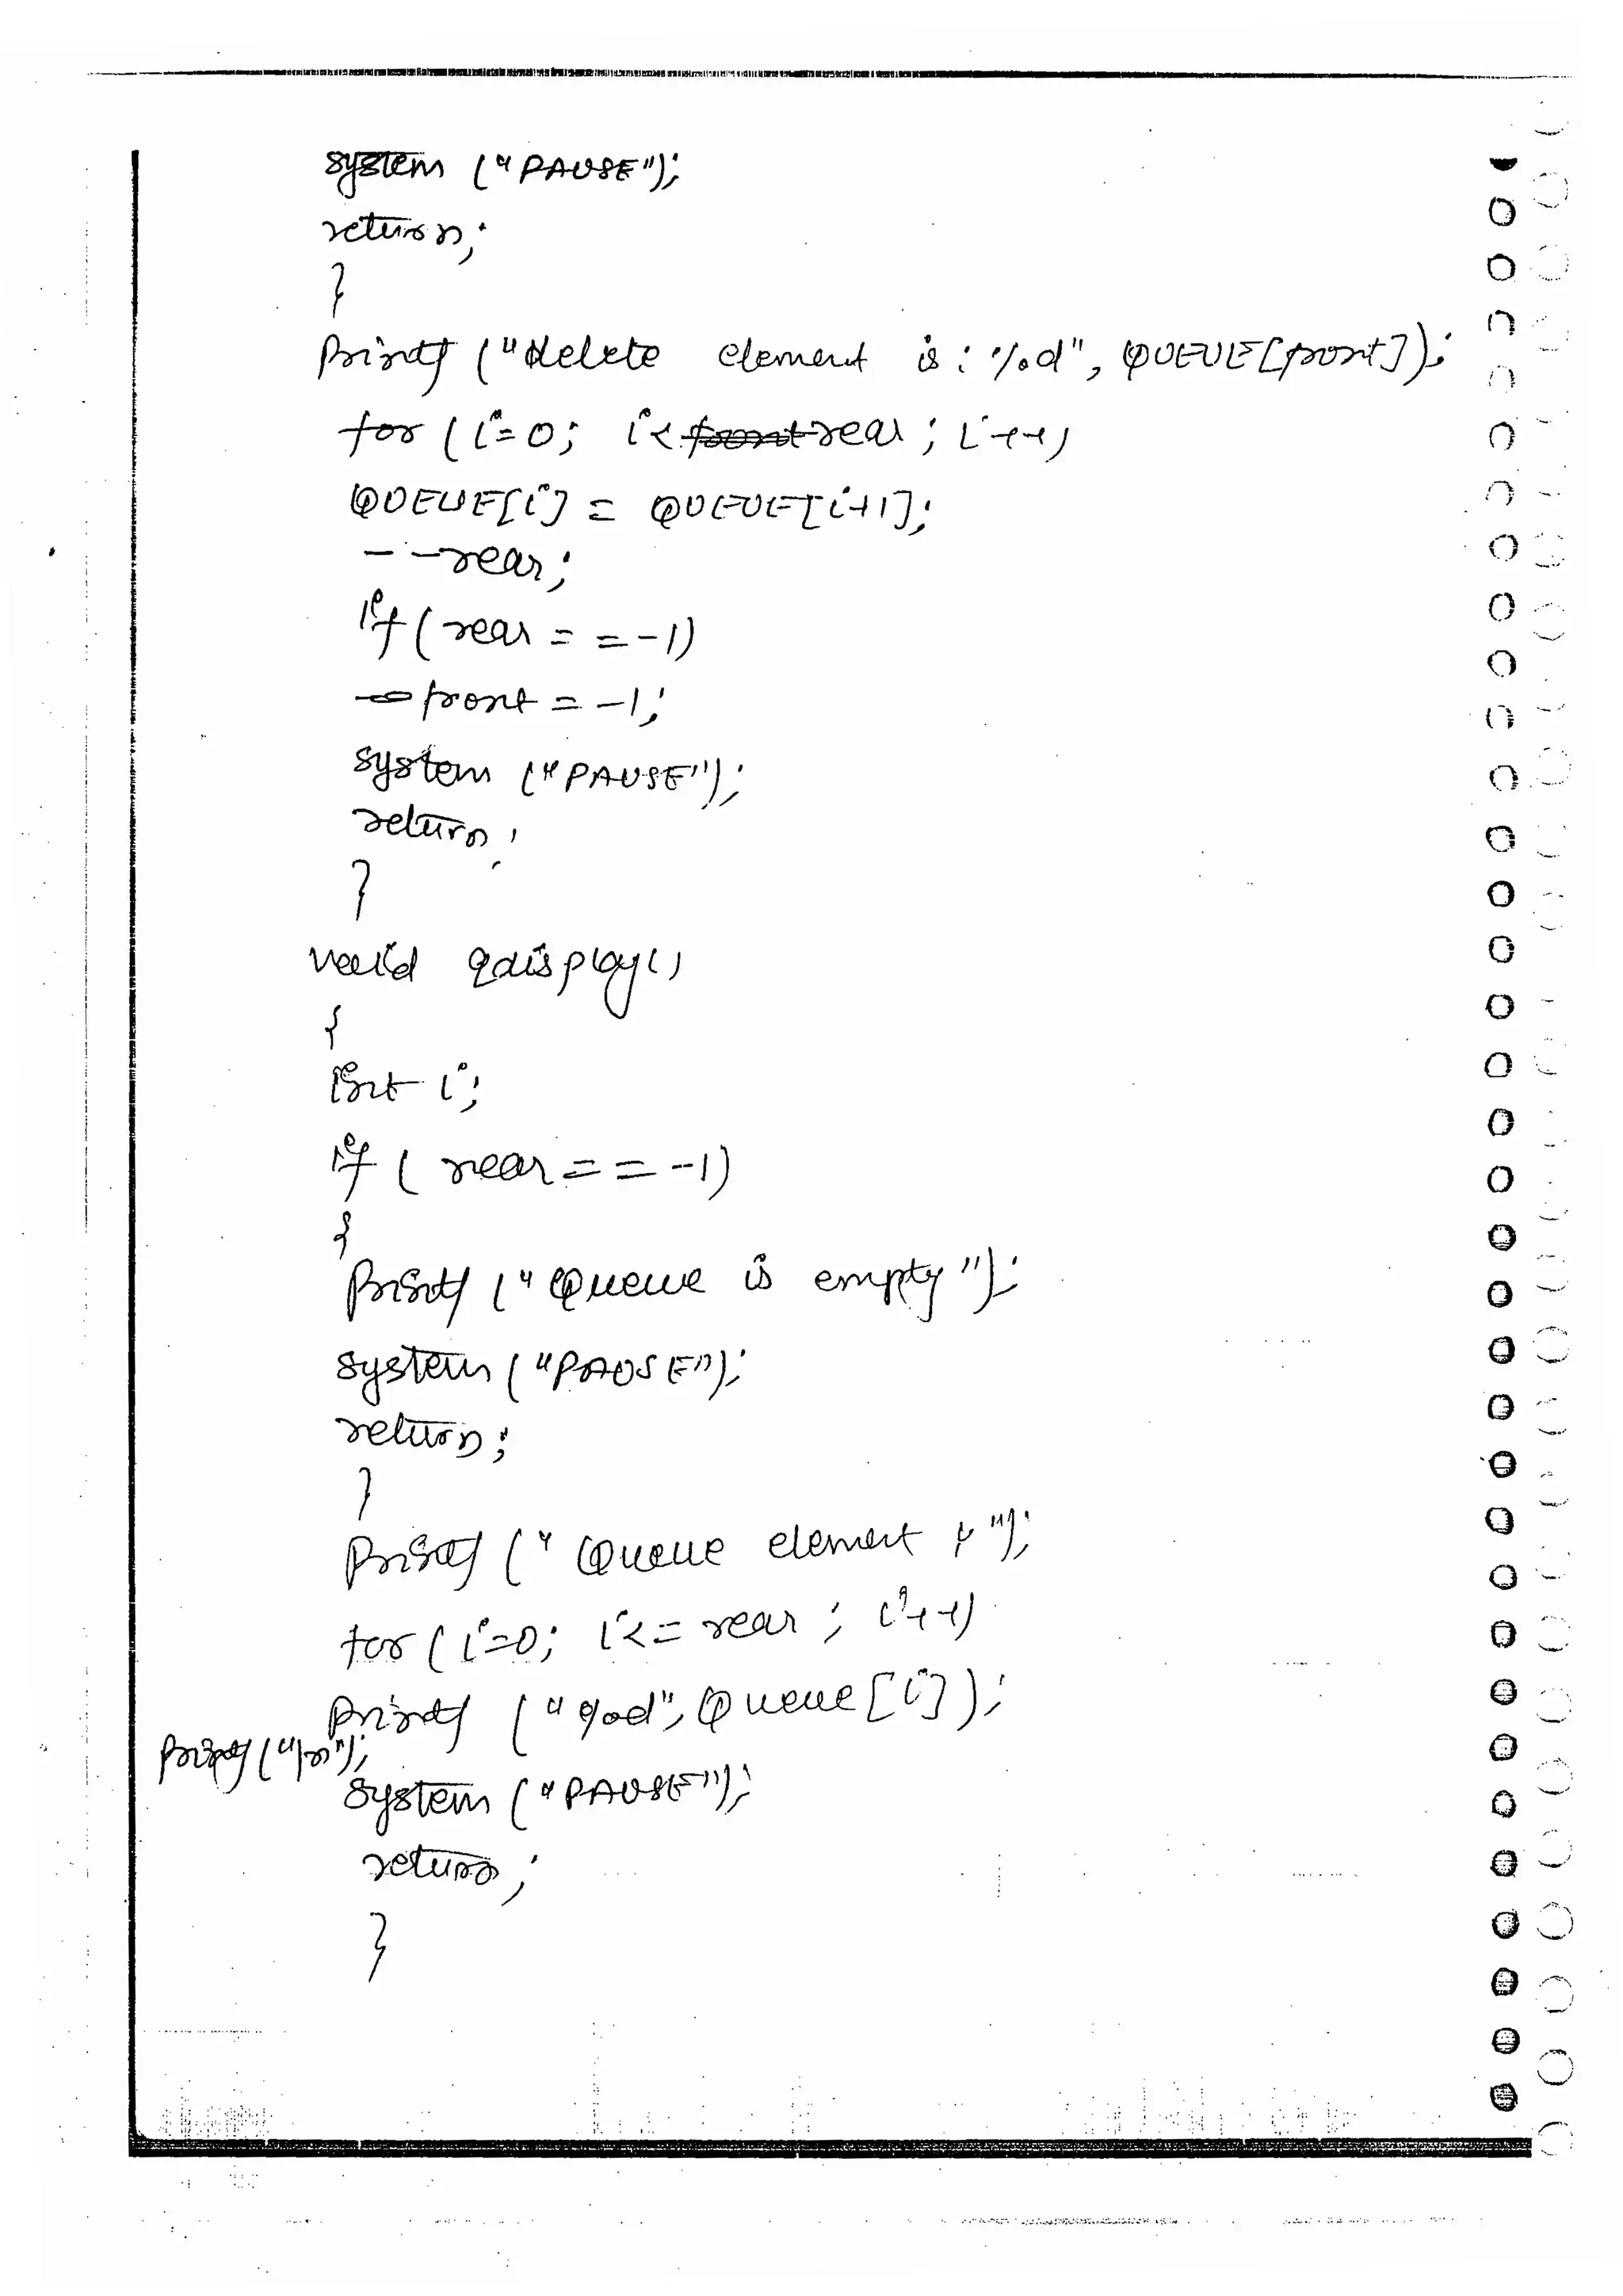 system ("PAUSE");
return;
}
printf ("delete element is : %d", QUEUE[front]);
for (i=0; i< rear ; i++)
QUEUE[i] = QUEUE[i+1];
--rear;
if (rear == -1)
front = -1;
system ("PAUSE");
return;
}
void qdisplay()
{
int i;
if ( rear == -1)
{
printf ("Queue is empty");
system ("PAUSE");
return;
}
printf (" Queue element : ");
for (i=0; i<= rear ; i++)
printf ("%d", Queue [i] );
printf ("\n");
system ("PAUSE");
return;
}